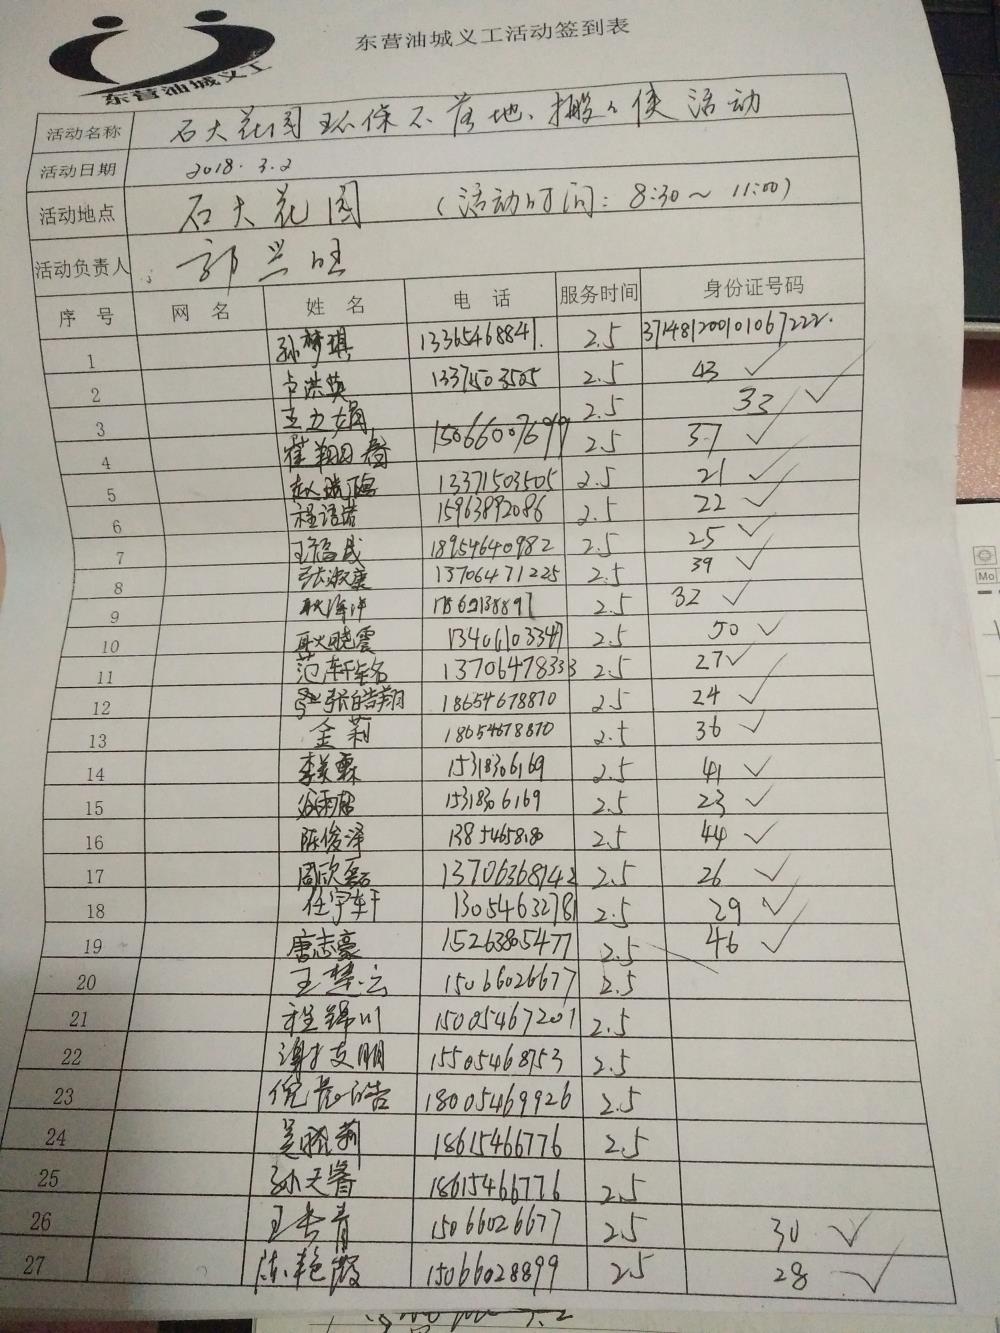 东营油城义工活动签到表
东营油城义工
活动名称 石大花园环保不落地、搬么使活动
活动日期 2018.3.2
活动地点 石大花园 (活动时间: 8:30~11:00)
活动负责人 郭兰旺
序号 网名 姓名 电话 服务时间 身份证号码
1 孙梦琪 13365468841. 2.5 371481200101067222.
2 卢洪英 13371503505 2.5 43 ✓
3 王力娟 2.5 33 ✓
4 15066007699 2.5 37 ✓
5 13371503505 2.5 21 ✓
6 程语诺 15963892086 2.5 22 ✓
7 18954640982 2.5 25 ✓
8 张淑康 13706471225 2.5 39 ✓
9 耿海冲 2.5 32 ✓
10 耿晓震 13406103347 2.5 50 ✓
11 范轩铭 13706478333 2.5 27 ✓
12 张皓翔 18654678870 2.5 24 ✓
13 金莉 18654678870 2.5 36 ✓
14 李美霖 15318306169 2.5 41 ✓
15 15318306169 2.5 23 ✓
16 陈俊泽 2.5 44 ✓
17 周欣磊 13706368142 2.5 26 ✓
18 任宇轩 13054632781 2.5 29 ✓
19 唐志豪 15263805477 2.5 46 ✓
20 王楚云 15066026677 2.5
21 程锦川 15005467201 2.5
22 谢支明 15505468753 2.5
23 18005469926 2.5
24 18615466776 2.5
25 孙天睿 18615466776 2.5
26 王长青 15066026677 2.5 30 ✓
27 陈艳霞 15066028899 2.5 28 ✓
Mo